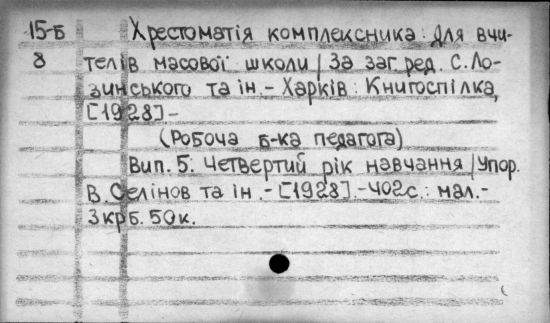 15-Б Хрестоматія комплексника: Для вчи-
8 телів масової школи / За заг ред. С. Ло-
зинського та ін. - Харків: Книгоспілка,
[1928] -
(Робоча б-ка педагога)
Вип. 5: Четвертий рік навчання / Упор.
В. Селінов та ін. - [1928]. - 402с.: мал. -
3крб. 50к.